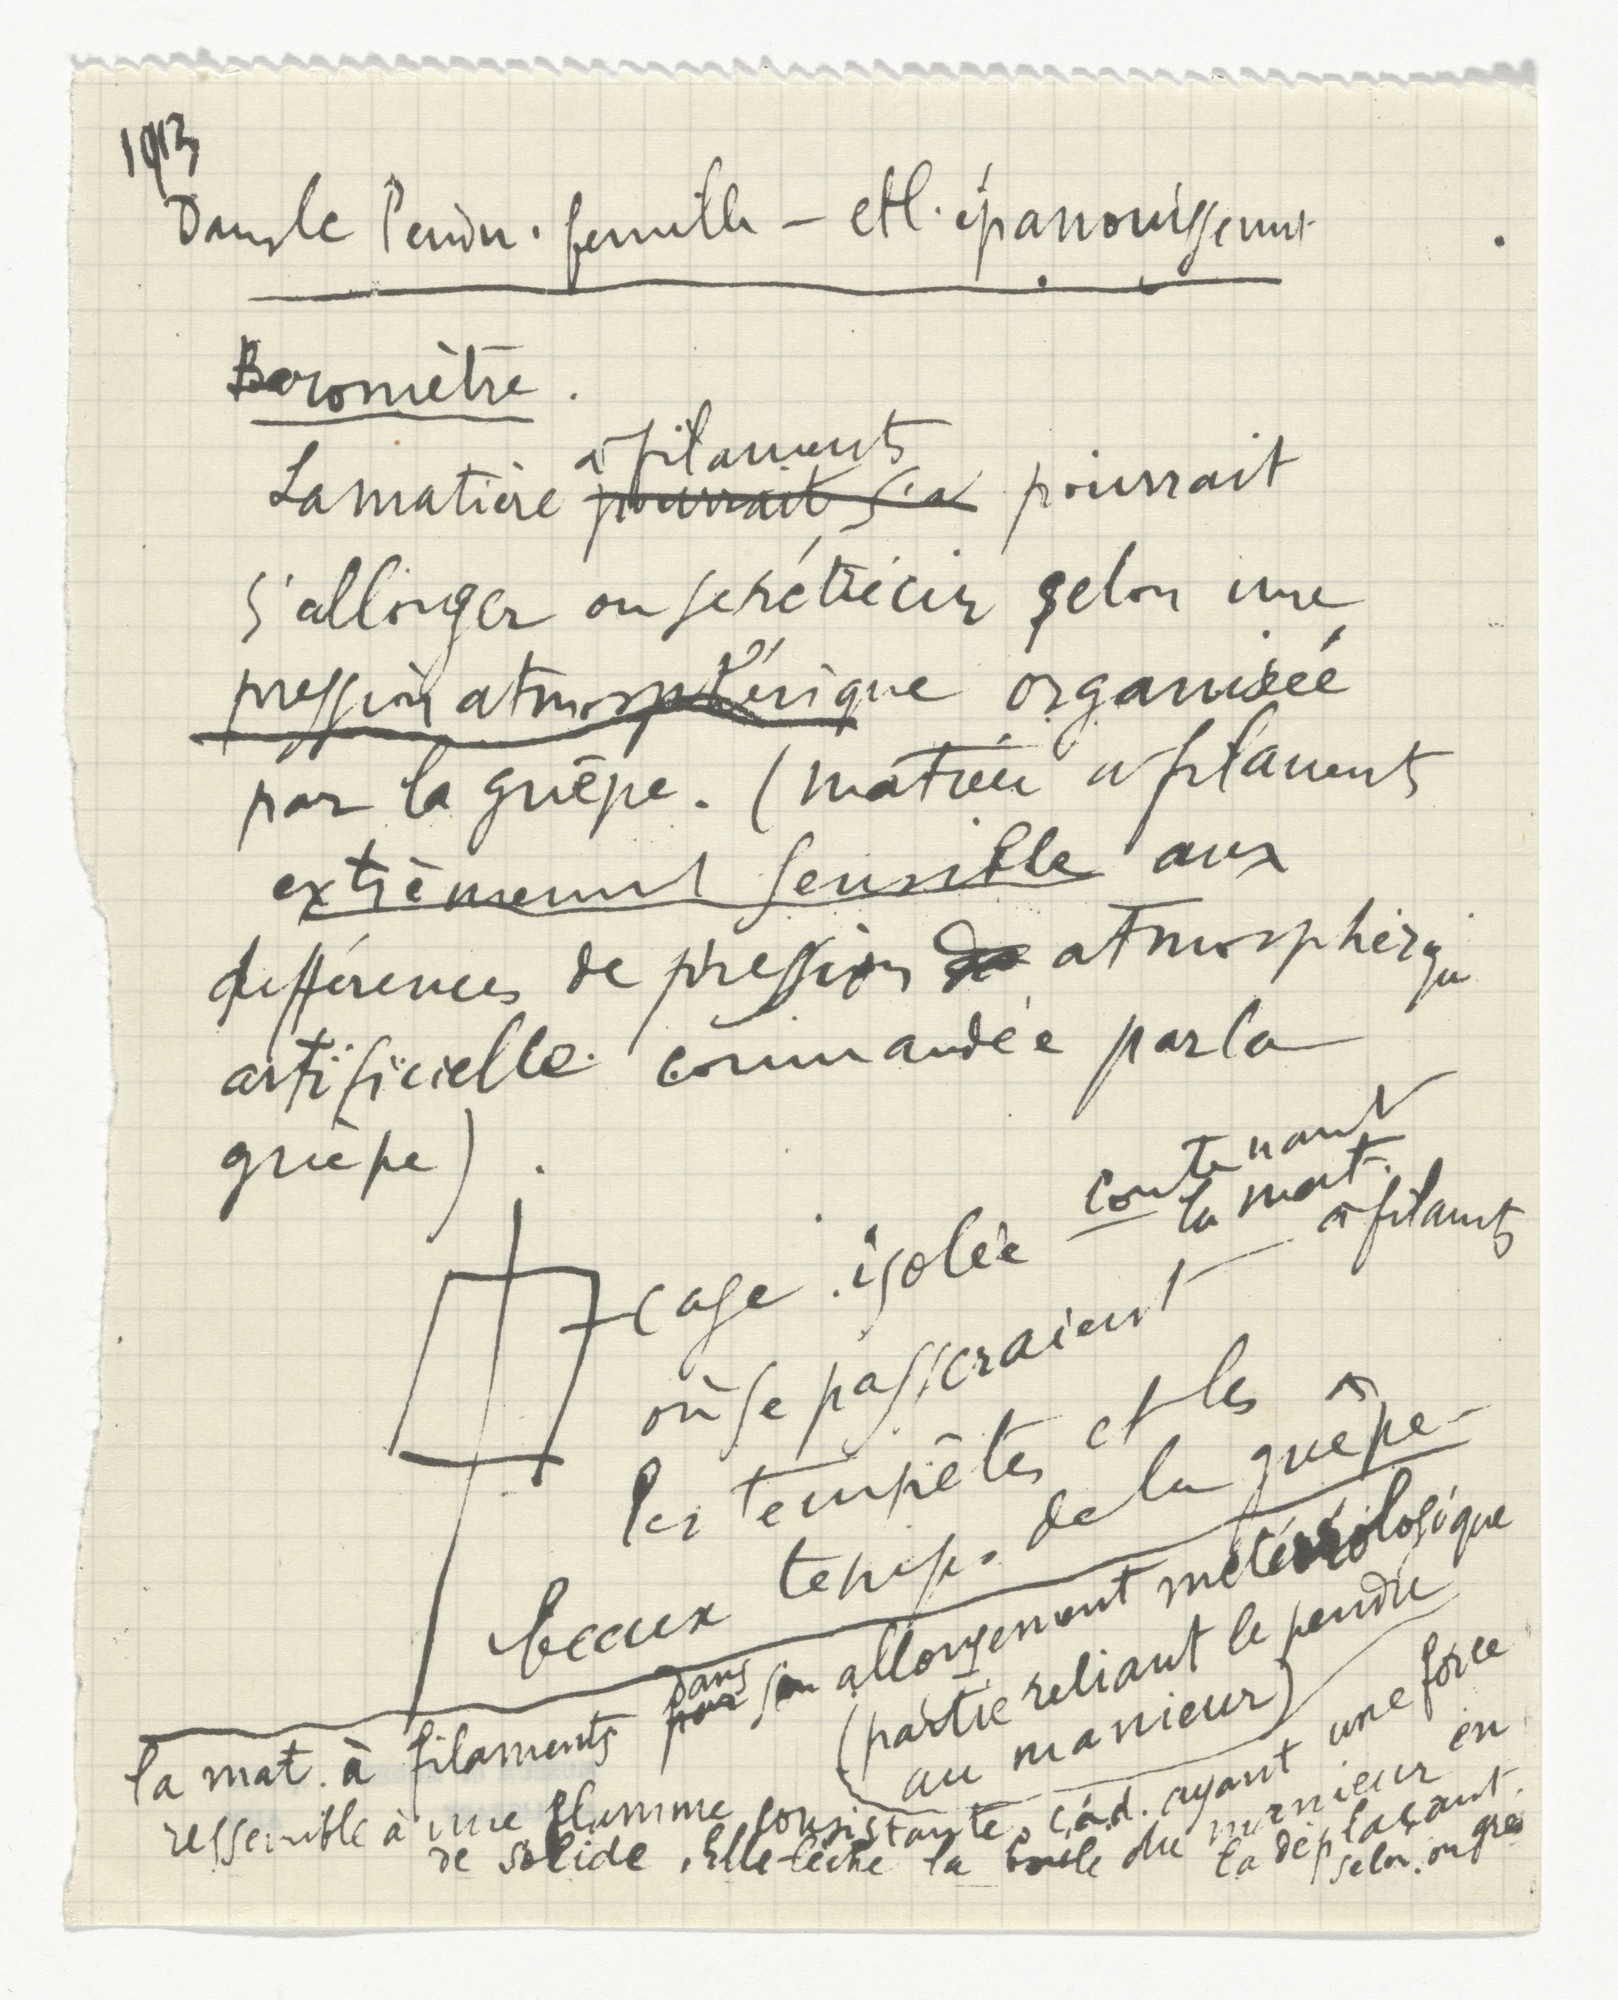 1913
Dans le Pendu. femelle – et l'épanouissement
Baromètre.
à filaments
La matière pourrait s'al pourrait
s'allonger ou se rétrécir selon une
pression atmosphérique organisée
par la guêpe. (matière à filaments
extrêmement sensible aux
différences de pression de atmosphérique
artificielle commandée par la
guêpe).
cage isolée contenant
la mat.
à filaments
où se passeraient
les tempêtes et les
beaux temps. de la guêpe
la mat. à filaments dans son allongement météorologique
(partie reliant le pendu
au manieur)
ressemble à une flamme consistante, c.à.d. ayant une force
de solide. Elle lèche la boule du manieur en
la déplaçant
selon. son gré